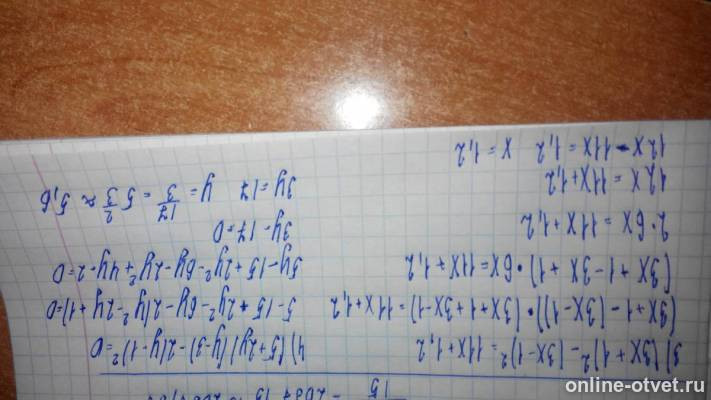 15
3) (3x+1)² - (3x-1)² = 11x+1,2
(3x+1-(3x-1))·(3x+1+3x-1) = 11x+1,2
(3x+1-3x+1)·6x = 11x+1,2
2·6x = 11x+1,2
12x = 11x+1,2
12x - 11x = 1,2 x = 1,2
4) (5+2y)(y-3)-2(y-1)²=0
5-15+2y²-6y-2(y²-2y+1)=0
5y-15+2y²-6y-2y²+4y-2=0
3y-17=0
3y=17 y = 17/3 = 5 2/3 ≈ 5,6
online-otvet.ru